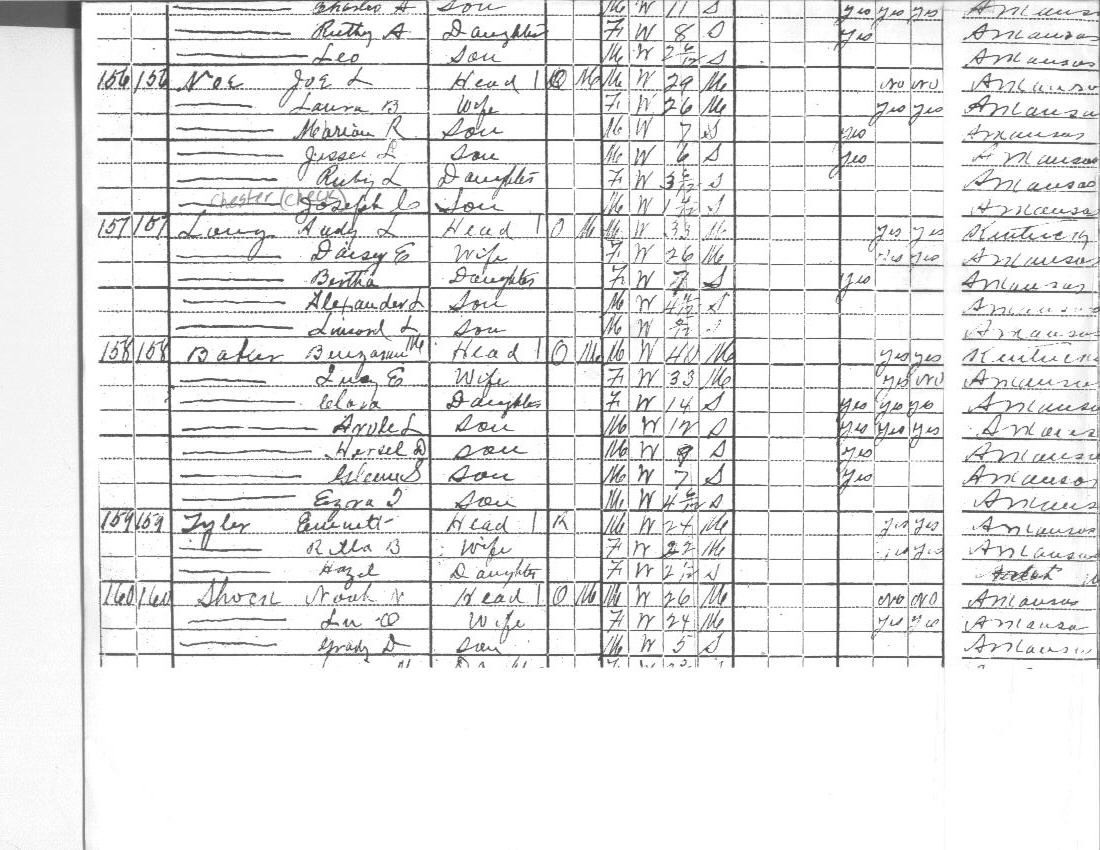 Charles A Son M W 11 S yes yes yes Arkansas
Ruthy A Daughter F W 8 S yes Arkansas
Leo Son M W 2 6/12 S Arkansas
156 156 Noe Joe L Head 1 O M M W 29 M no no Arkansas
Laura B Wife F W 26 M yes yes Arkansas
Marion R Son M W 7 S yes Arkansas
Jesse L Son M W 6 S yes Arkansas
Ruby L Daughter F W 3 S Arkansas
Chester (check)
Joseph C Son M W 1 S Arkansas
157 157 Long Andy L Head 1 O M M W 33 M yes yes Kentucky
Daisey E Wife F W 26 M yes yes Arkansas
Bertha Daughter F W 7 S yes Arkansas
Alexander L Son M W 4 S Arkansas
L Son M W S Arkansas
158 158 Baker Benjamin M Head 1 O M M W 40 M yes yes Kentucky
Lucy E Wife F W 33 M yes no Arkansas
Clara Daughter F W 14 S yes yes yes Arkansas
L Son M W 12 S yes yes yes Arkansas
Hersel D Son M W 9 S yes Arkansas
S Son M W 7 S yes Arkansas
Ezora T Son M W 4 6/12 S Arkansas
159 159 Tyler Emmett Head 1 R M W 24 M yes yes Arkansas
B Wife F W 22 M yes yes Arkansas
Hazel Daughter F W 2 S
160 160 Noah N Head 1 O M M W 26 M no no Arkansas
O Wife F W 24 M yes yes Arkansas
Grady D Son M W 5 S Arkansas